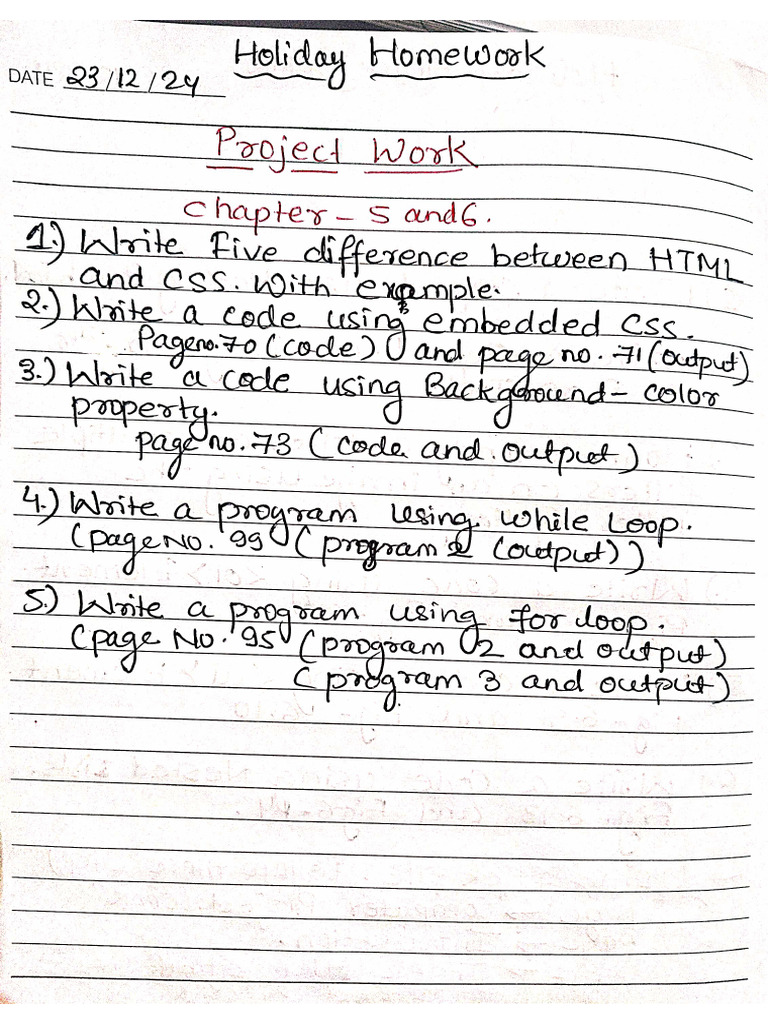 Holiday Homework
DATE 23/12/24
Project Work
Chapter - 5 and 6.
1.) Write Five difference between HTML
and CSS. With example.
2.) Write a code using embedded CSS.
Page no. 70 (code) and page no. 71 (output)
3.) Write a code using Background - color
property.
page no. 73 (code and output)
4.) Write a program using while Loop.
(page No. 99 (program 2 (output))
5.) Write a program using for loop.
(page No. 95 (program 2 and output)
(program 3 and output)